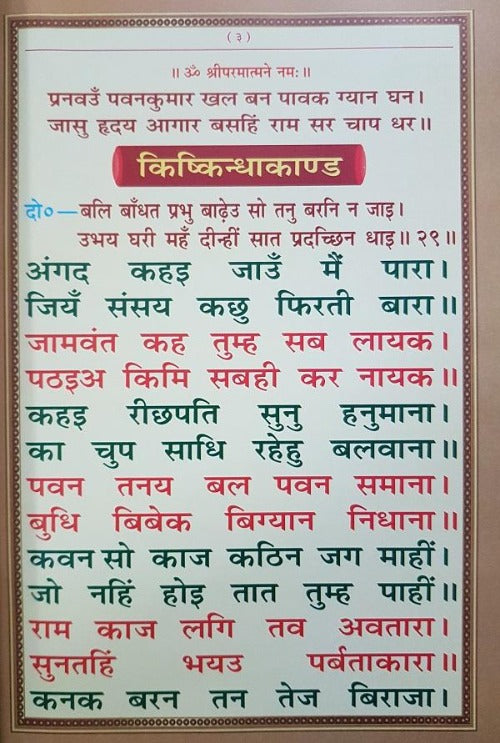 ( ३ )
॥ ॐ श्रीपरमात्मने नमः॥
प्रनवउँ पवनकुमार खल बन पावक ग्यान घन।
जासु हृदय आगार बसहिं राम सर चाप धर॥
किष्किन्धाकाण्ड
दो०—बलि बाँधत प्रभु बाढ़ेउ सो तनु बरनि न जाइ।
उभय घरी महँ दीन्हीं सात प्रदच्छिन धाइ॥ २९॥
अंगद कहइ जाउँ मैं पारा।
जियँ संसय कछु फिरती बारा॥
जामवंत कह तुम्ह सब लायक।
पठइअ किमि सबही कर नायक॥
कहइ रीछपति सुनु हनुमाना।
का चुप साधि रहेहु बलवाना॥
पवन तनय बल पवन समाना।
बुधि बिबेक बिग्यान निधाना॥
कवन सो काज कठिन जग माहीं।
जो नहिं होइ तात तुम्ह पाहीं॥
राम काज लगि तव अवतारा।
सुनतहिं भयउ पर्बताकारा॥
कनक बरन तन तेज बिराजा।